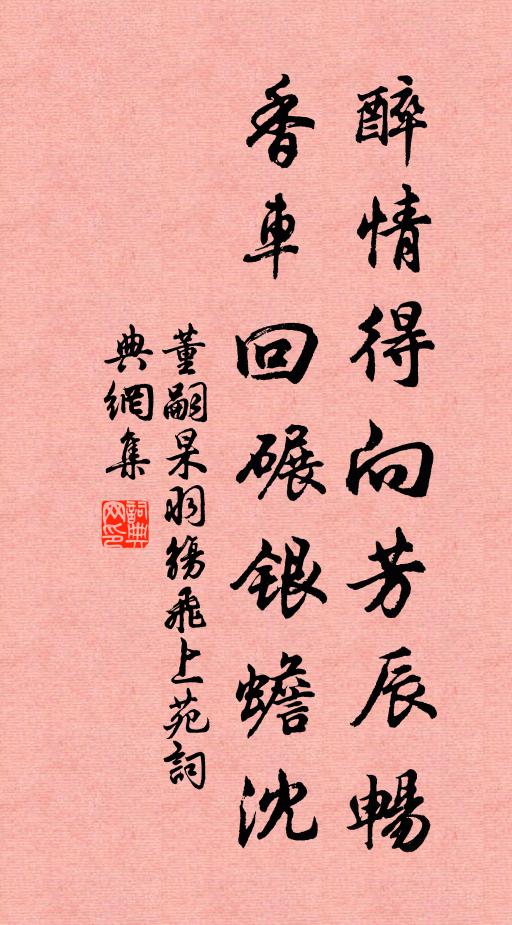 醉情得向芳辰暢
香車回碾銀蟾沈
董嗣杲羽觴飛上苑詞
典網集
詞典網印